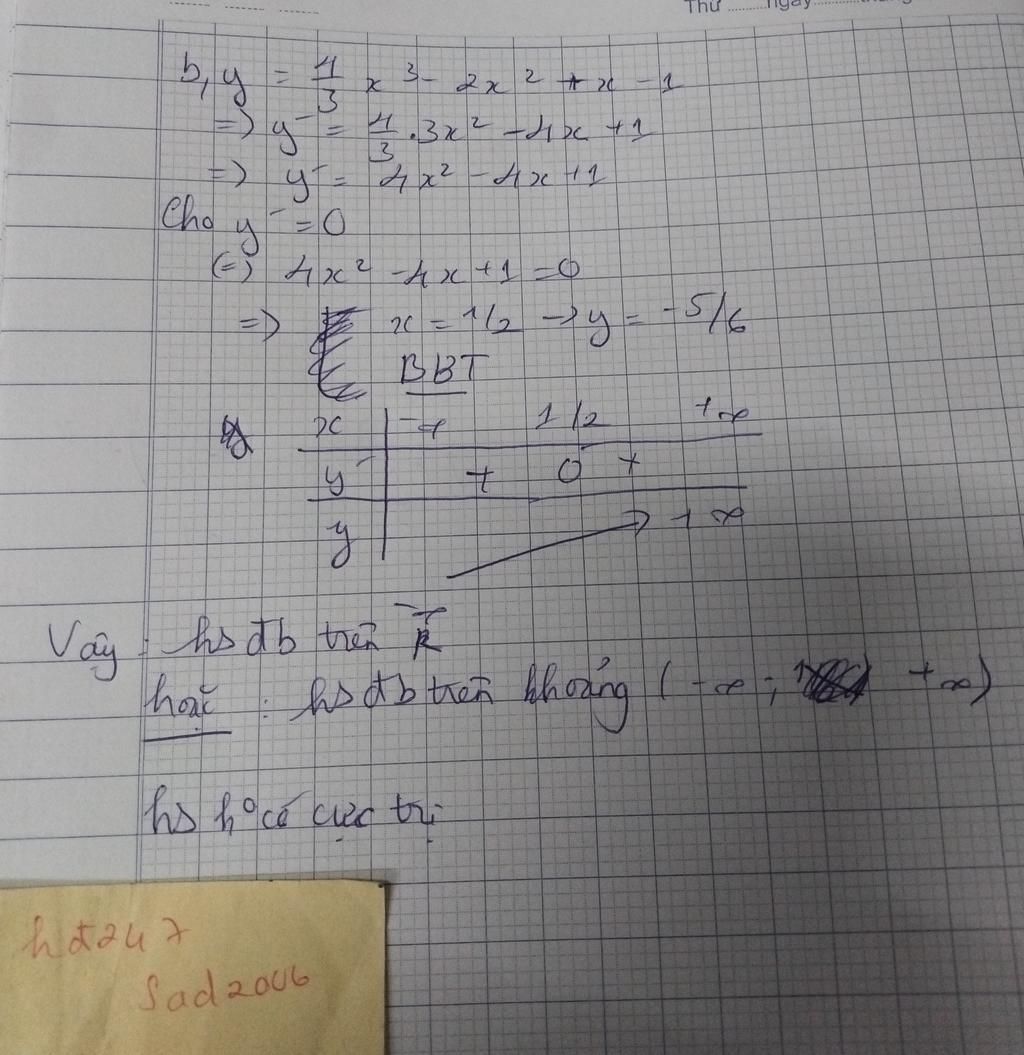 Thứ ........ngày............
b, y = 4/3 x³ - 2x² + x - 1
=> y' = 4/3 .3x² - 4x + 1
=> y' = 4x² - 4x + 1
Cho y' = 0
(=) 4x² - 4x + 1 = 0
=> x = 1/2 -> y = -5/6
BBT
x -∞ 1/2 +∞
y' + 0 +
y +∞
Vậy : hs đb trên R
hoặc : hs đb trên khoảng (-∞ ; +∞)
hs k° có cực trị
hđ247
Sad2006